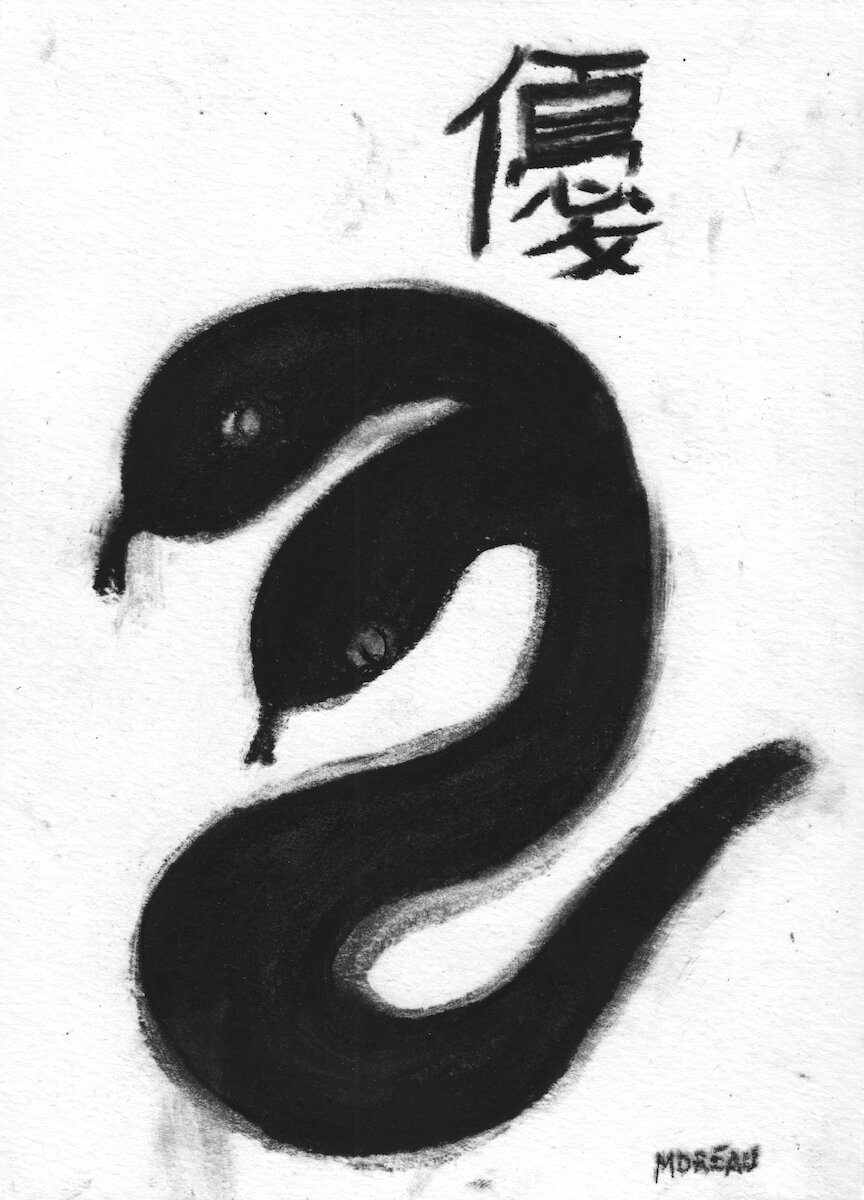 優
MOREAU